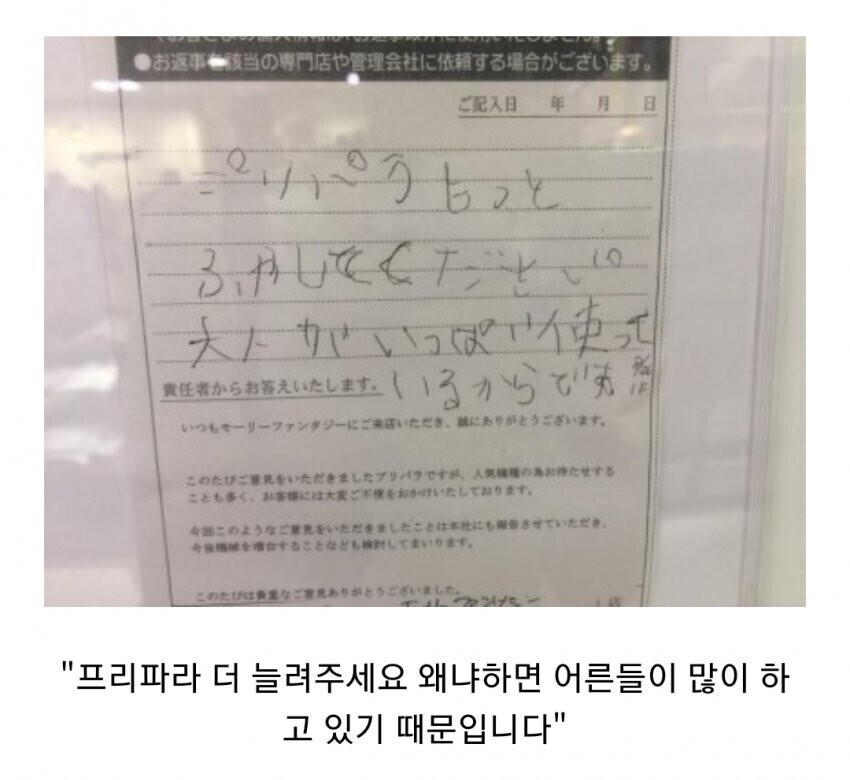 ●お返事を該当の専門店や管理会社に依頼する場合がございます。
ご記入日 年 月 日
プリパラもっと
ふやしてください
大人がいっぱい使って
責任者からお答えいたします。 いるからです
いつもモーリーファンタジーにご来店いただき、誠にありがとうございます。
このたびご意見をいただきましたプリパラですが、人気機種の為お待たせする
ことも多く、お客様には大変ご不便をおかけいたしております。
今回このようなご意見をいただきましたことは本社にも報告させていただき、
今後機械を増台することなども検討してまいります。
このたびは貴重なご意見ありがとうございました。
"프리파라 더 늘려주세요 왜냐하면 어른들이 많이 하
고 있기 때문입니다"